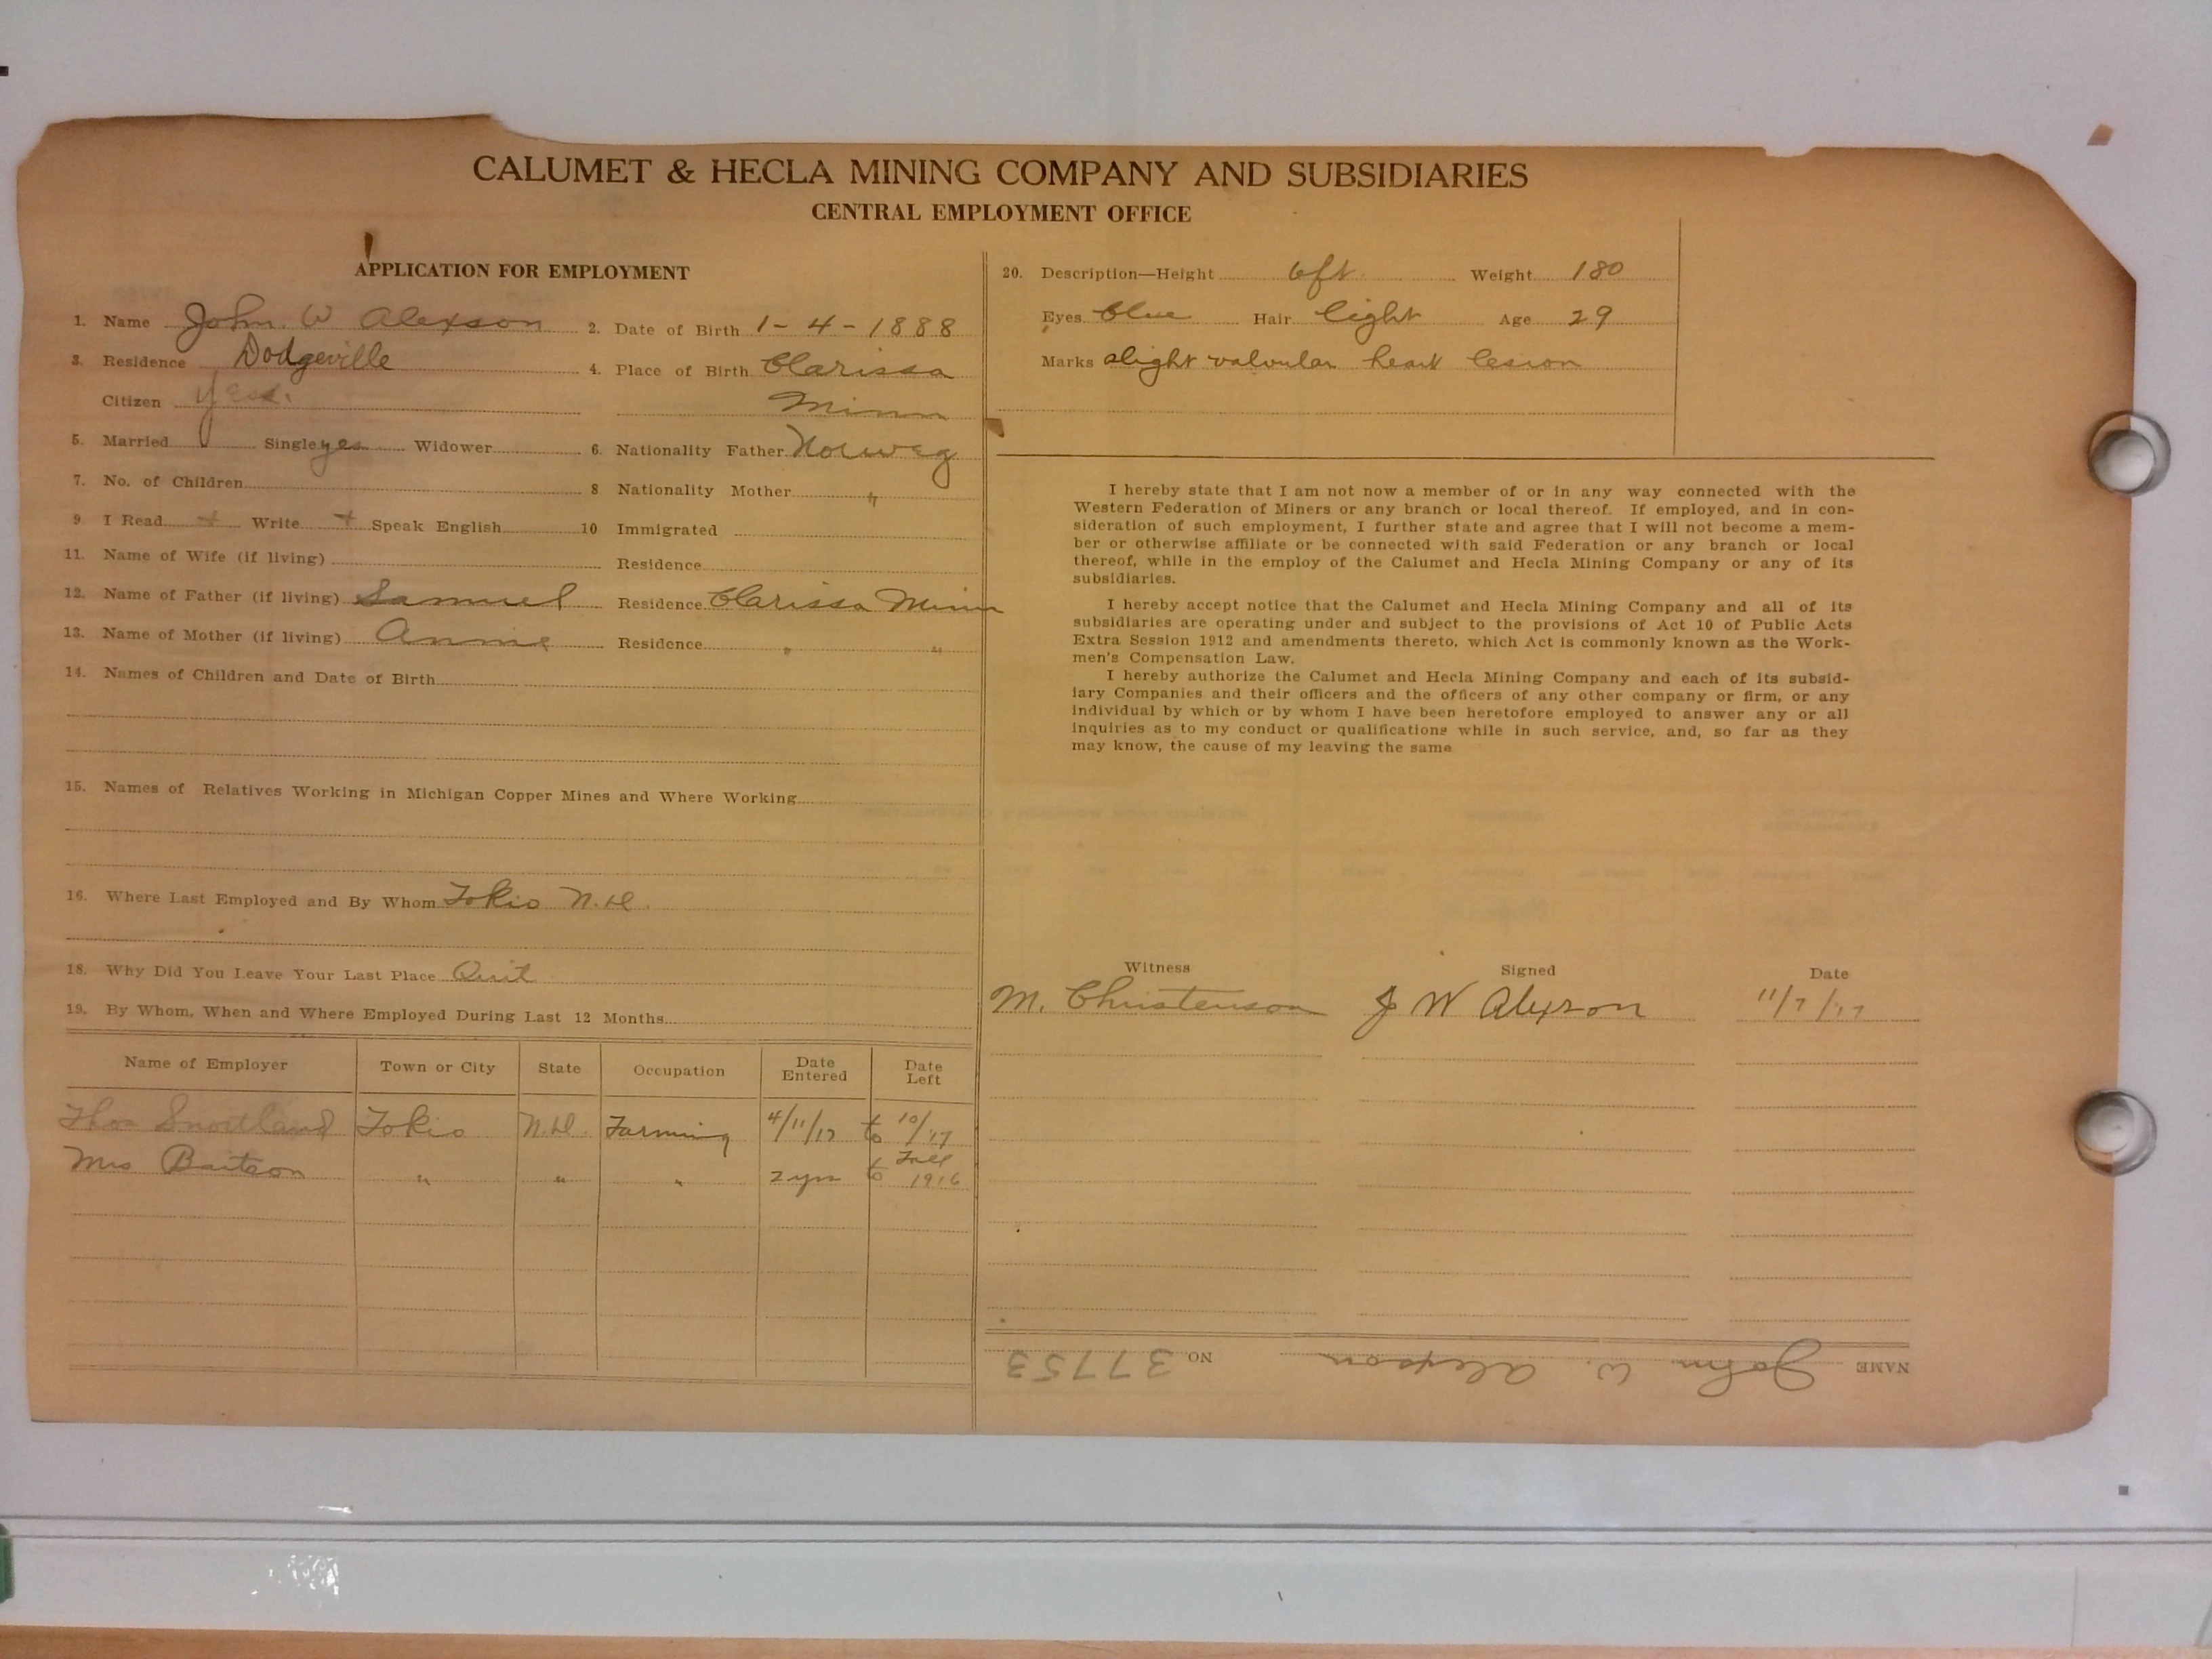 CALUMET & HECLA MINING COMPANY AND SUBSIDIARIES
CENTRAL EMPLOYMENT OFFICE
APPLICATION FOR EMPLOYMENT
1. Name John W Alexson 2. Date of Birth 1-4-1888
3. Residence Dodgeville 4. Place of Birth Clarissa
Citizen yes. Minn
5. Married Single yes Widower 6. Nationality Father Norweg
7. No. of Children 8 Nationality Mother "
9 I Read + Write + Speak English 10 Immigrated
11. Name of Wife (if living) Residence
12. Name of Father (if living) Samuel Residence Clarissa Minn
13. Name of Mother (if living) Annie Residence " "
14. Names of Children and Date of Birth
15. Names of Relatives Working in Michigan Copper Mines and Where Working
16. Where Last Employed and By Whom Tokio N.D.
18. Why Did You Leave Your Last Place Quit
19. By Whom, When and Where Employed During Last 12 Months
Name of Employer Town or City State Occupation Date Entered Date Left
Thos Snortland Tokio N.D. Farming 4/11/17 to 10/17
Mrs " " " 2 yrs to Fall 1916
20. Description—Height 6ft. Weight 180
Eyes blue Hair light Age 29
Marks slight valvular heart lesion
I hereby state that I am not now a member of or in any way connected with the
Western Federation of Miners or any branch or local thereof. If employed, and in con-
sideration of such employment, I further state and agree that I will not become a mem-
ber or otherwise affiliate or be connected with said Federation or any branch or local
thereof, while in the employ of the Calumet and Hecla Mining Company or any of its
subsidiaries.
I hereby accept notice that the Calumet and Hecla Mining Company and all of its
subsidiaries are operating under and subject to the provisions of Act 10 of Public Acts
Extra Session 1912 and amendments thereto, which Act is commonly known as the Work-
men's Compensation Law.
I hereby authorize the Calumet and Hecla Mining Company and each of its subsid-
iary Companies and their officers and the officers of any other company or firm, or any
individual by which or by whom I have been heretofore employed to answer any or all
inquiries as to my conduct or qualifications while in such service, and, so far as they
may know, the cause of my leaving the same
Witness Signed Date
M. Christenson J W Alexson 11/7/17
NAME John W. Alexson NO 37753